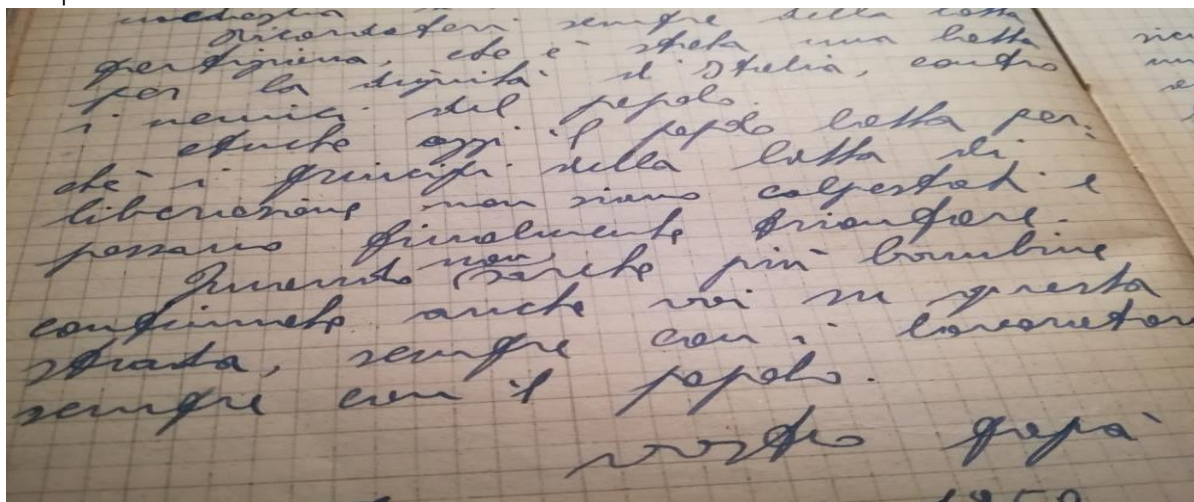 Ricordatevi sempre della lotta
partigiana, che è stata una lotta
per la dignità d'Italia, contro
i nemici del popolo.
Anche oggi il popolo lotta per-
chè i principi della lotta di
liberazione non siano calpestati e
possano finalmente trionfare.
Quando non sarete più bambine
continuate anche voi su questa
strada, sempre con i lavoratori
sempre con il popolo.
vostro papà